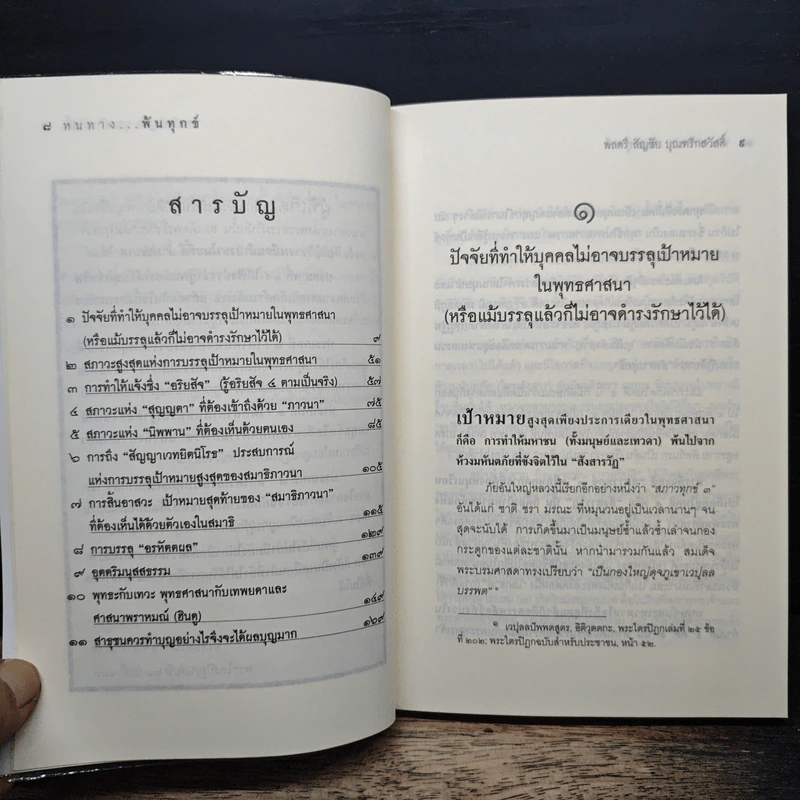 ๘ หนทาง...พ้นทุกข์
สารบัญ
๑ ปัจจัยที่ทำให้บุคคลไม่อาจบรรลุเป้าหมายในพุทธศาสนา
(หรือแม้บรรลุแล้วก็ไม่อาจดำรงรักษาไว้ได้) ๙
๒ สภาวะสูงสุดแห่งการบรรลุเป้าหมายในพุทธศาสนา ๕๑
๓ การทำให้แจ้งซึ่ง “อริยสัจ” (รู้อริยสัจ ๔ ตามเป็นจริง) ๕๗
๔ สภาวะแห่ง “สุญญตา” ที่ต้องเข้าถึงด้วย “ภาวนา” ๗๕
๕ สภาวะแห่ง “นิพพาน” ที่ต้องเห็นด้วยตนเอง ๘๕
๖ การถึง “สัญญาเวทยิตนิโรธ” ประสบการณ์
แห่งการบรรลุเป้าหมายสูงสุดของสมาธิภาวนา ๑๐๕
๗ การสิ้นอาสวะ เป้าหมายสุดท้ายของ “สมาธิภาวนา”
ที่ต้องเห็นได้ด้วยตัวเองในสมาธิ ๑๑๕
๘ การบรรลุ “อรหัตตผล” ๑๒๙
๙ อุตตริมนุสสธรรม ๑๓๙
๑๐ พุทธะกับเทวะ พุทธศาสนากับเทพยดาและ
ศาสนาพราหมณ์ (ฮินดู) ๑๔๙
๑๑ สาธุชนควรทำบุญอย่างไรจึงจะได้ผลบุญมาก ๑๖๙
พลตรี สัญชัย บุณฑริกสวัสดิ์ ๙
๑
ปัจจัยที่ทำให้บุคคลไม่อาจบรรลุเป้าหมาย
ในพุทธศาสนา
(หรือแม้บรรลุแล้วก็ไม่อาจดำรงรักษาไว้ได้)
เป้าหมายสูงสุดเพียงประการเดียวในพุทธศาสนา
ก็คือ การทำให้มหาชน (ทั้งมนุษย์และเทวดา) พ้นไปจาก
ห้วงมหันตภัยที่ขังจิตไว้ใน “สังสารวัฏ”
ภัยอันใหญ่หลวงนี้เรียกอีกอย่างหนึ่งว่า “สภาวทุกข์ ๓”
อันได้แก่ ชาติ ชรา มรณะ ที่หมุนวนอยู่เป็นเวลานานๆ จน
สุดจะนับได้ การเกิดขึ้นมาเป็นมนุษย์ซ้ำแล้วซ้ำเล่าจนกอง
กระดูกของแต่ละชาตินั้น หากนำมารวมกันแล้ว สมเด็จ
พระบรมศาสดาทรงเปรียบว่า “เป็นกองใหญ่ดุจภูเขาเวปุลล
บรรพต”
เวปุลลปัพพตสูตร, อิติวุตตกะ, พระไตรปิฎกเล่มที่ ๒๕ ข้อ
ที่ ๒๐๒; พระไตรปิฎกฉบับสำหรับประชาชน, หน้า ๕๒.